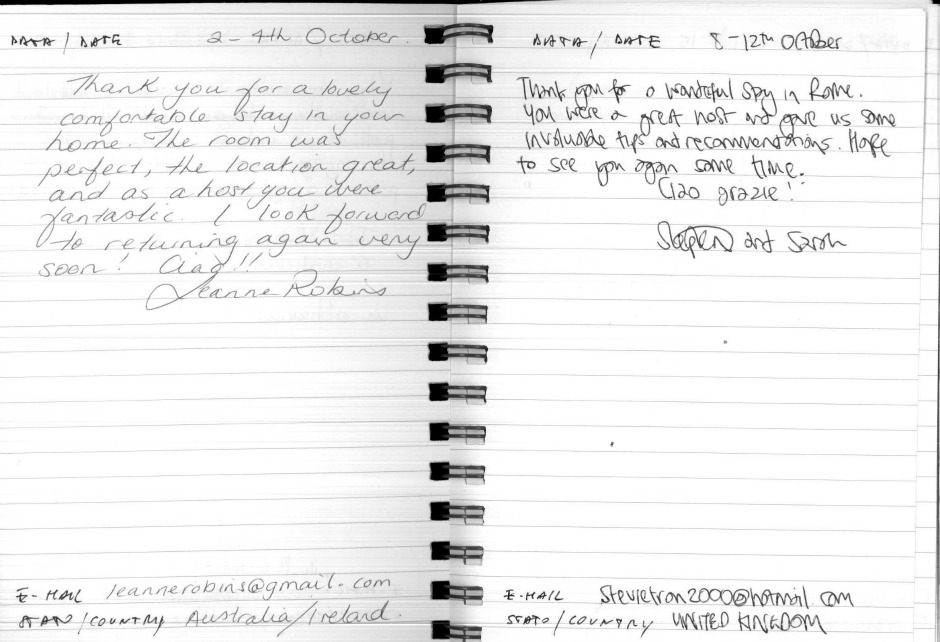 DATA / DATE 2-4th October.
Thank you for a lovely
comfortable stay in your
home. The room was
perfect, the location great,
and as a host you were
fantastic. I look forward
to returning again very
soon! Ciao!!
Leanne Robins
E-MAIL leannerobins@gmail.com
STATO / COUNTRY Australia/Ireland.
DATA / DATE 8-12th October
Thank you for a wonderful stay in Rome.
You were a great host and gave us some
invaluable tips and recommendations. Hope
to see you again some time.
Ciao grazie!
Stephen and Sarah
E-MAIL Stevietron2000@hotmail.com
STATO / COUNTRY UNITED KINGDOM